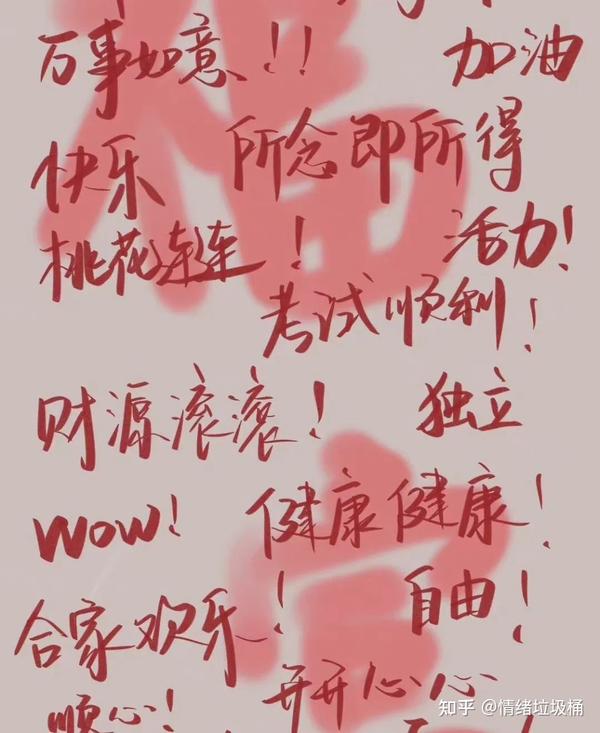 万事如意!!
加油
快乐
所念即所得
桃花连连!
活力!
考试顺利!
财源滚滚!
独立
wow!
健康健康!
自由!
合家欢乐!
开开心心
顺心!
知乎 @情绪垃圾桶